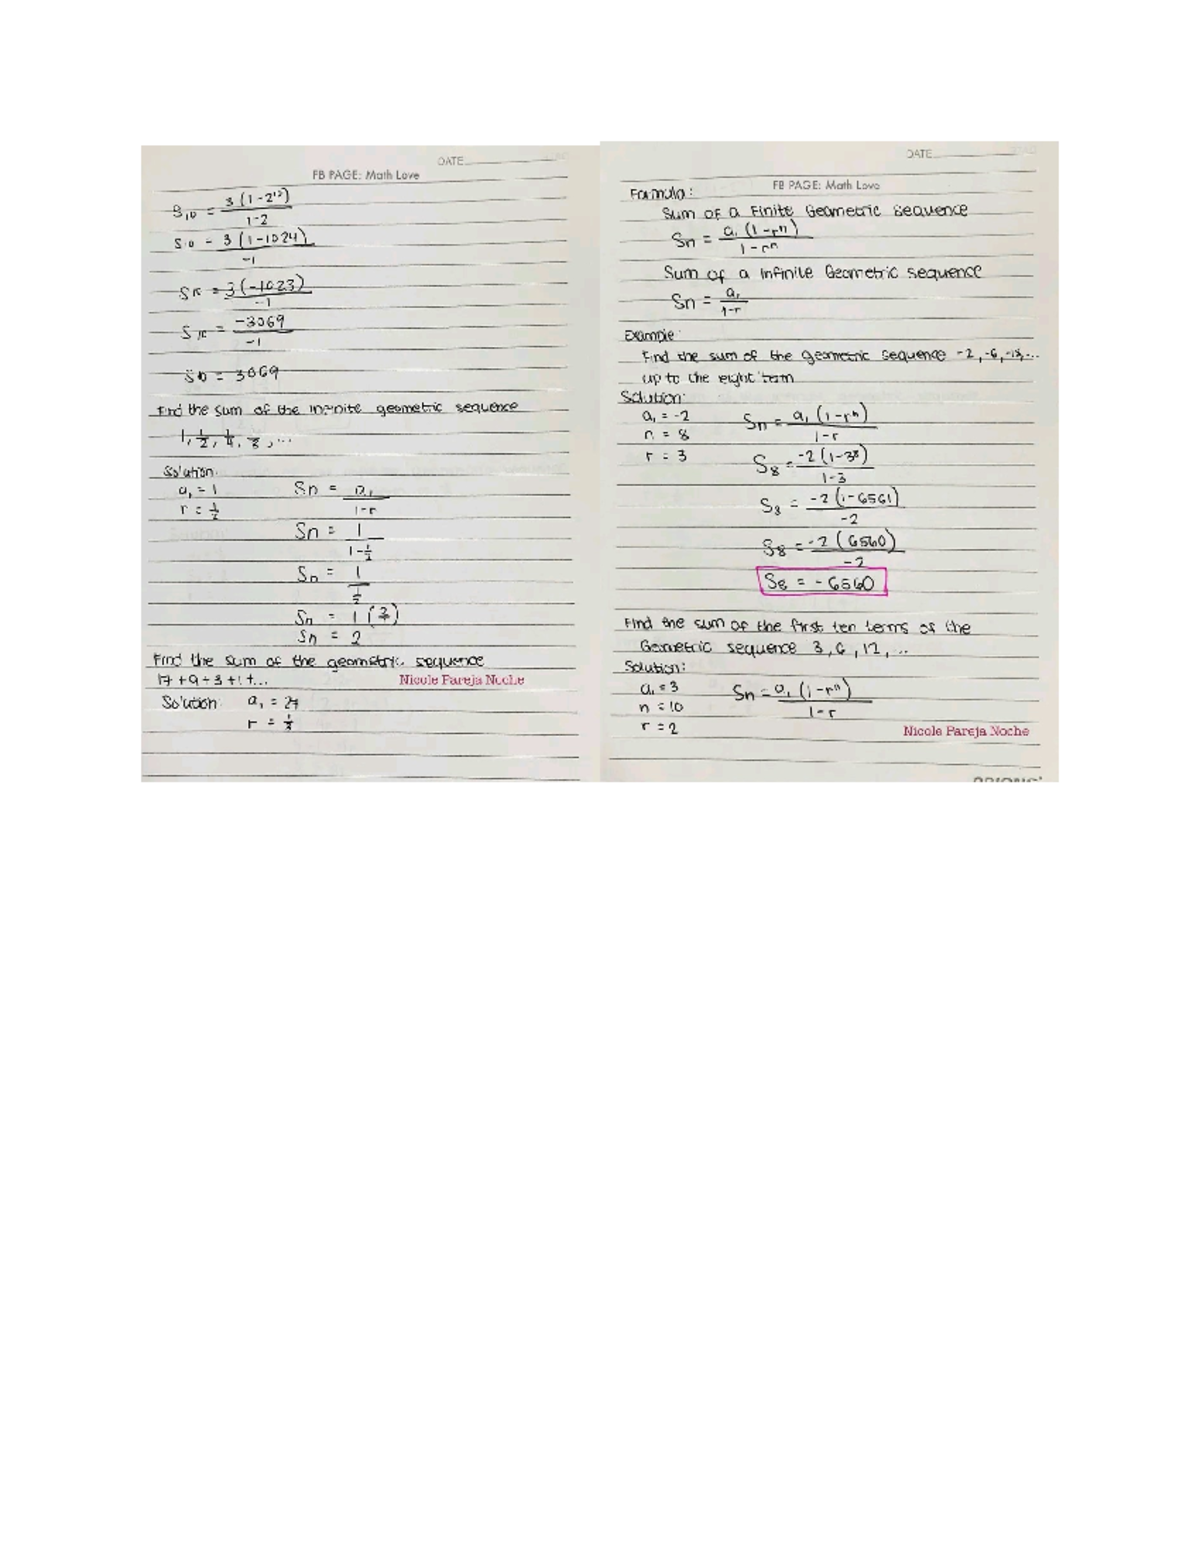 DATE
FB PAGE: Math Love
S₁₀ = 3(1-2¹⁰)/1-2
S₁₀ = 3(1-1024)/-1
S₁₀ = 3(-1023)/-1
S₁₀ = -3069/-1
S₁₀ = 3069
Find the sum of the infinite geometric sequence
1, 1/2, 1/4, 1/8, ...
Solution:
a₁ = 1
r = 1/2
Sn = a₁/1-r
Sn = 1/1-1/2
Sn = 1/1/2
Sn = 1(2/1)
Sn = 2
Find the sum of the geometric sequence
27 + 9 + 3 + 1 + ...
Nicole Pareja Noche
Solution: a₁ = 27
r = 1/3
DATE
FB PAGE: Math Love
Formula:
Sum of a Finite Geometric Sequence
Sn = a₁(1-rⁿ)/1-rⁿ
Sum of a Infinite Geometric sequence
Sn = a₁/1-r
Example:
Find the sum of the geometric sequence -2, -6, -18, ...
up to the eight term
Solution:
a₁ = -2
n = 8
r = 3
Sn = a₁(1-rⁿ)/1-r
S₈ = -2(1-3⁸)/1-3
S₈ = -2(1-6561)/-2
S₈ = -2(6560)/-2
S₈ = -6560
Find the sum of the first ten terms of the
Geometric sequence 3, 6, 12, ...
Solution:
a₁ = 3
n = 10
r = 2
Sn = a₁(1-rⁿ)/1-r
Nicole Pareja Noche